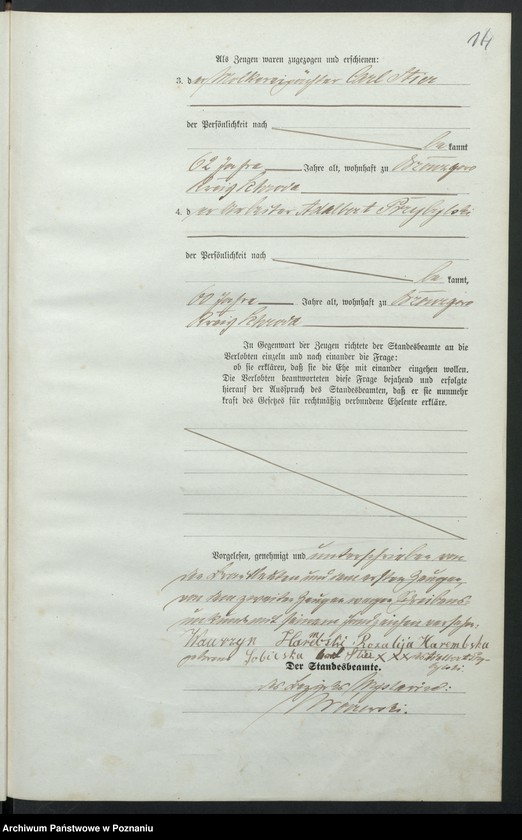 14
Als Zeugen waren zugezogen und erschienen:
3. der Molkereipächter Carl Stier
der Persönlichkeit nach
bekannt
62 Jahre Jahre alt, wohnhaft zu
Kreis Schroda
4. der Arbeiter Adalbert Przybylski
der Persönlichkeit nach
bekannt,
60 Jahre Jahre alt, wohnhaft zu
Kreis Schroda
In Gegenwart der Zeugen richtete der Standesbeamte an die
Verlobten einzeln und nach einander die Frage:
ob sie erklären, daß sie die Ehe mit einander eingehen wollen.
Die Verlobten beantworteten diese Frage bejahend und erfolgte
hierauf der Ausspruch des Standesbeamten, daß er sie nunmehr
kraft des Gesetzes für rechtmäßig verbundene Eheleute erkläre.
Vorgelesen, genehmigt und unterschrieben von
den Brautleuten und dem ersten Zeugen,
von dem zweiten Zeugen wegen Schreibens-
unkunde mit seinem Handzeichen versehen:
Wawrzyn Harembski Rozalija Harembska
geborene Sobieska Carl Stier XXX Adalbert Przy-
bylski
Der Standesbeamte.